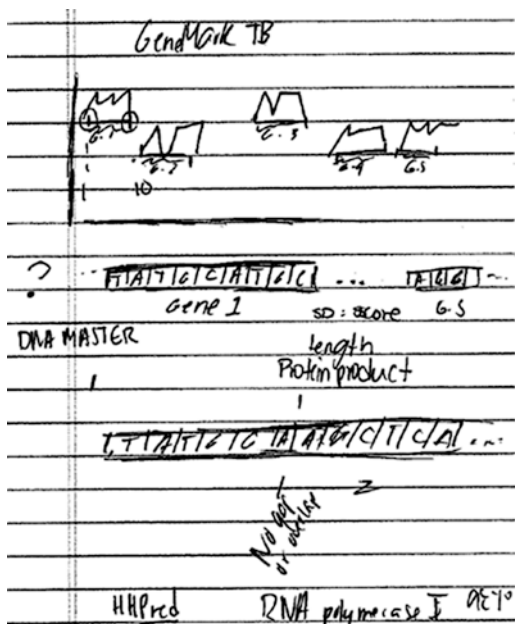 GeneMark TB
G.1
G.3
G.2
G.4
G.5
1
10
? ... T A T G C A T G C ... A G G ...
Gene 1
SD: score
G.5
DNA MASTER
length
Protein product
1
T T A T G G A A G C T C A ...
2
No gap
or overlap
HHPred RNA polymerase II